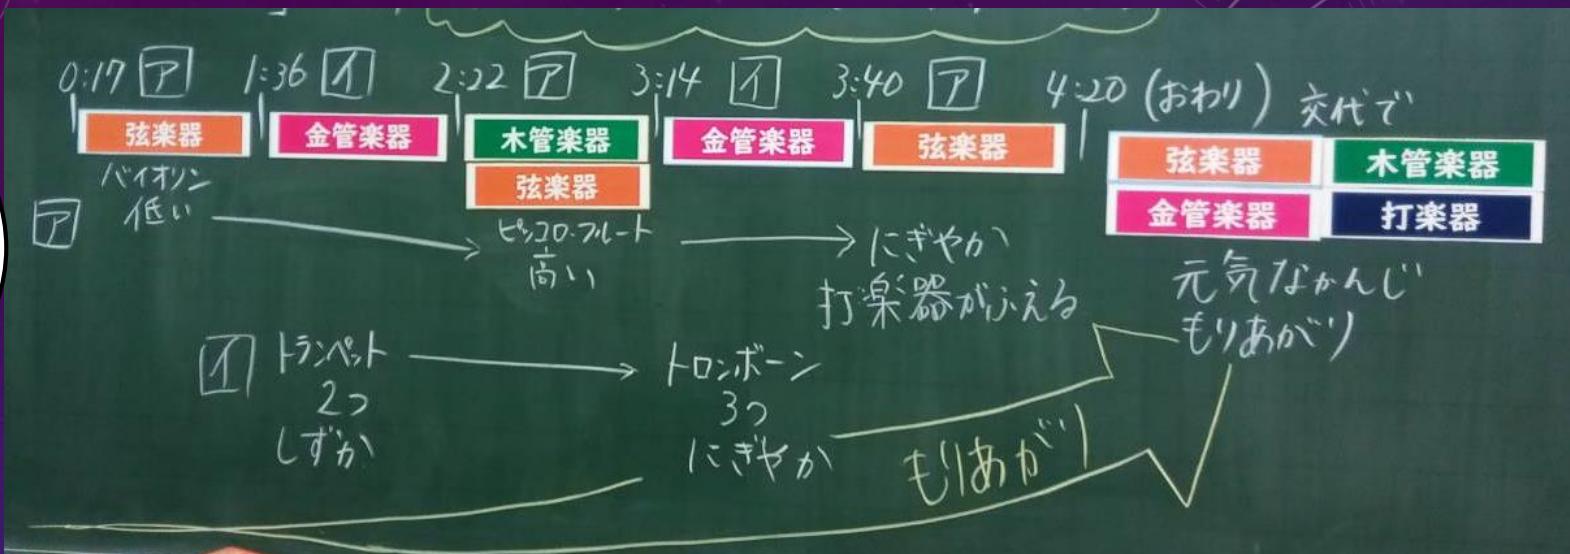 0:17 ア 1:36 イ 2:22 ア 3:14 イ 3:40 ア 4:20 (おわり) 交代で
弦楽器 金管楽器 木管楽器 金管楽器 弦楽器 弦楽器 木管楽器
弦楽器 金管楽器 打楽器
ア バイオリン
低い
ピッコロ・フルート
高い
にぎやか
打楽器がふえる
元気なかんじ
もりあがり
イ トランペット トロンボーン
2つ 3つ
しずか にぎやか
もりあがり